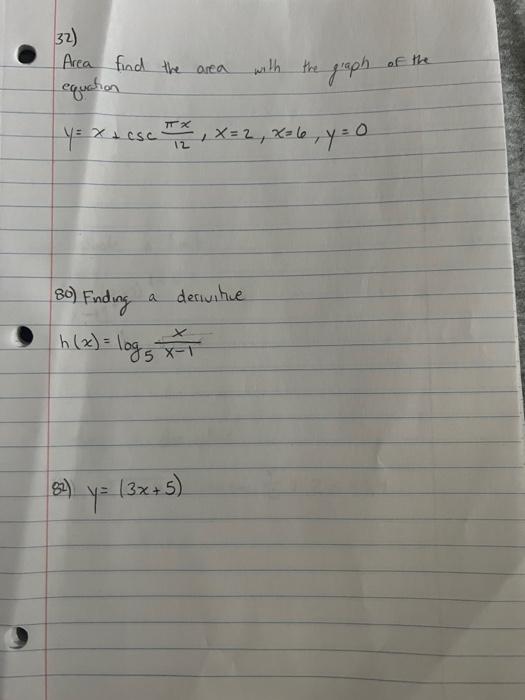 32)
Area find the area with the graph of the
equation
y = x + csc πx/12, x=2, x=6, y=0
80) Finding a derivitive
h(x) = log₅ x/x-1
82) y = (3x+5)